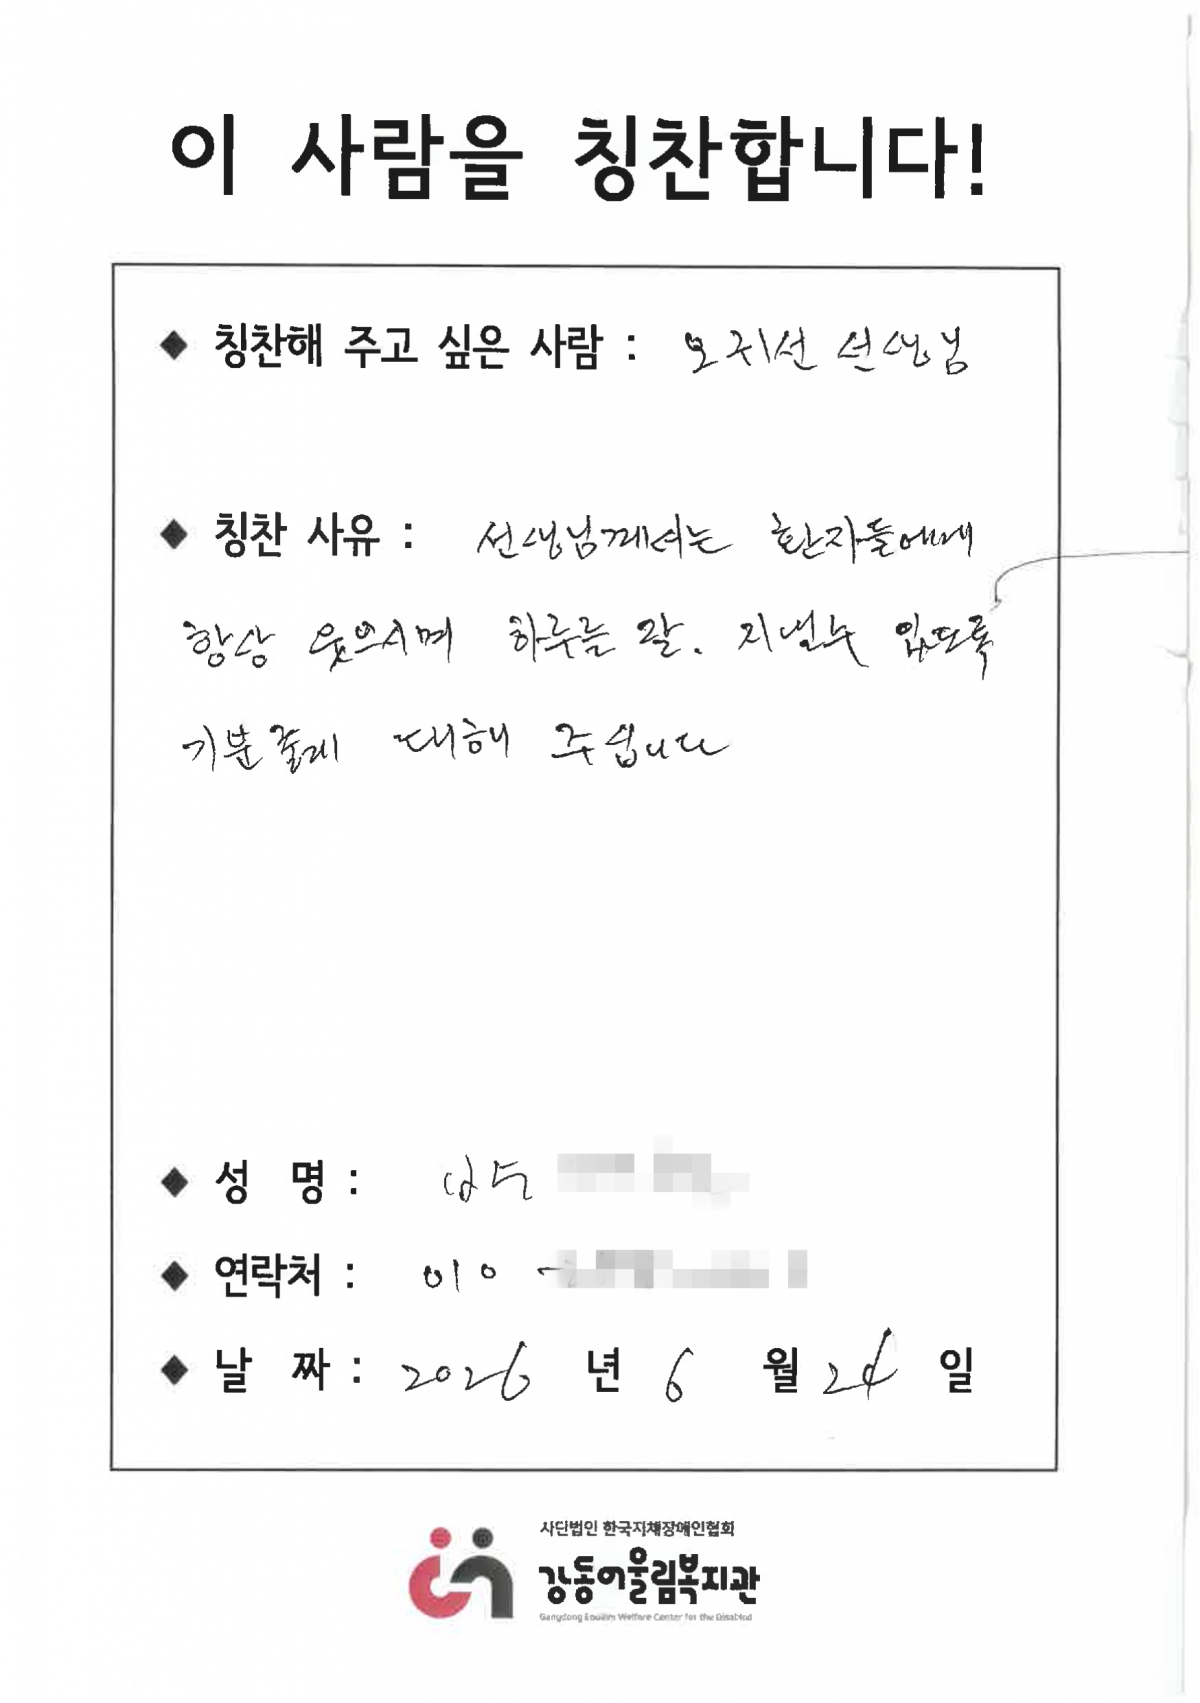 이 사람을 칭찬합니다!
◆ 칭찬해 주고 싶은 사람 : 오귀선 선생님
◆ 칭찬 사유 : 선생님께서는 환자들에게
항상 웃으시며 하루를 잘. 지낼수 있도록
기분좋게 대해 주십니다
◆ 성 명 :
◆ 연락처 : 010 -
◆ 날 짜 : 2026 년 6 월 24 일
사단법인 한국지체장애인협회
강동어울림복지관
Gangdong Eoullim Welfare Center for the Disabled